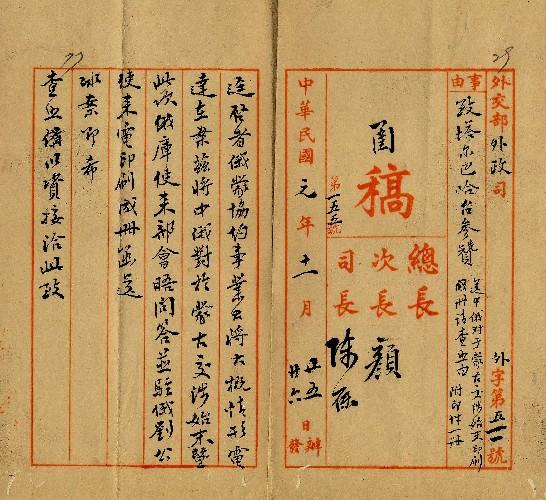 29
外交部外政司
事由
致塔尔巴哈台参赞
送中俄对于蒙古交涉始末印刷
成册请查照由 附印件一册
外字第五一一號
總長
次長 顏
司長 陳
稿
第一五三號
中華民國元年十一月
廿五日辦
廿六發
逕啓者俄蒙協約事業出將大概情形電
達在案茲將中俄對於蒙古交涉始末暨
此次俄庫使来部會晤問答並駐俄劉公
使来電印刷成册函送
冰案即希
查照備以資接洽此致